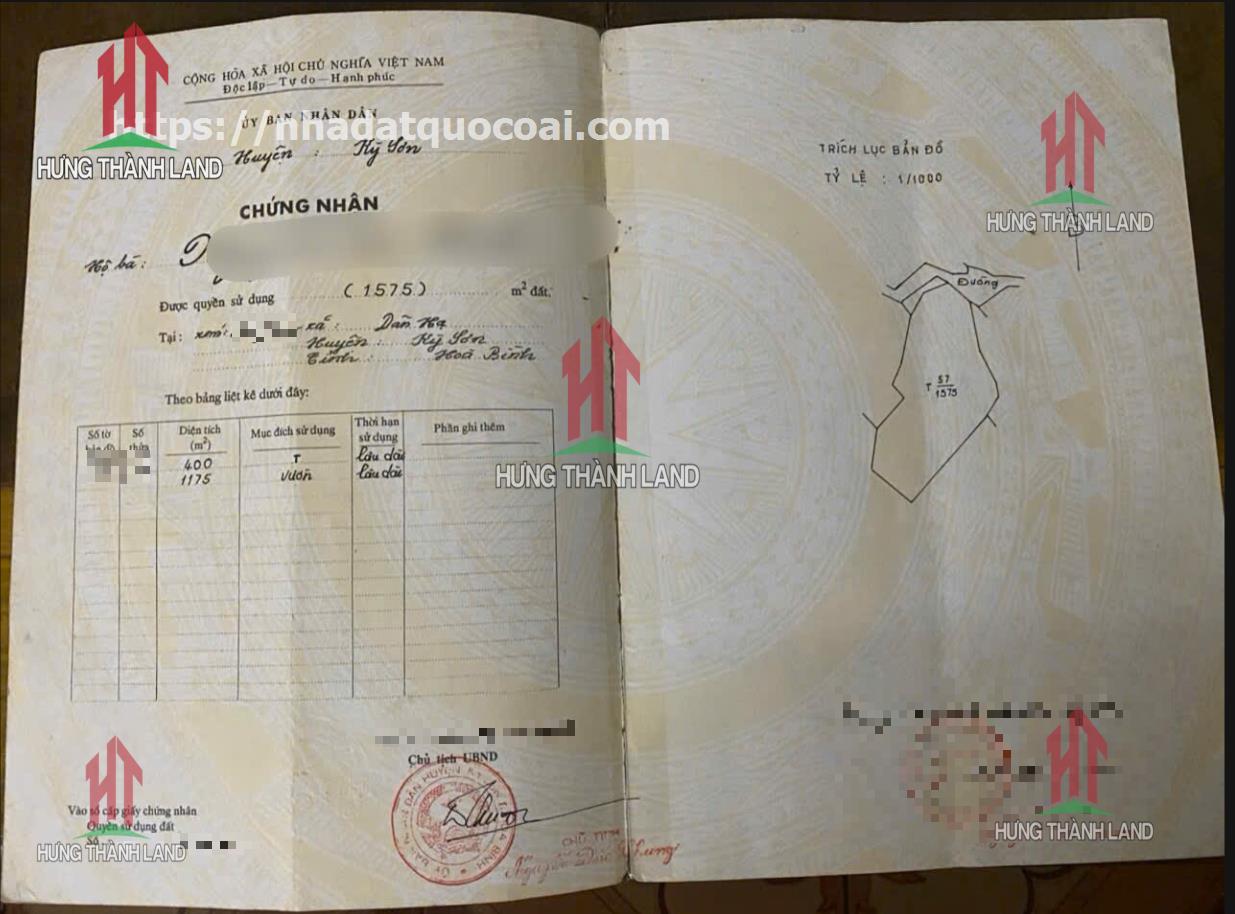 CỘNG HÒA XÃ HỘI CHỦ NGHĨA VIỆT NAM
Độc lập — Tự do — Hạnh phúc
ỦY BAN NHÂN DÂN
https://nhadatquocoai.com
Huyện : Kỳ Sơn
HƯNG THÀNH LAND
CHỨNG NHÂN
Hộ bà :
Được quyền sử dụng (1575) m² đất,
Tại : xóm: xã : Dân Hạ
Huyện : Kỳ Sơn
Tỉnh : Hoà Bình
Theo bảng liệt kê dưới đây:
Số tờ Số Diện tích (m²) Mục đích sử dụng Thời hạn sử dụng Phần ghi thêm
400 T Lâu dài
1175 vườn Lâu dài
Chủ tịch UBND
Vào sổ cấp giấy chứng nhân
Quyền sử dụng đất
Số
CHỦ TỊCH
HƯNG THÀNH LAND
HƯNG THÀNH LAND
TRÍCH LỤC BẢN ĐỒ
TỶ LỆ : 1/1000
HƯNG THÀNH LAND
Đường
T 57
1575
HƯNG THÀNH LAND